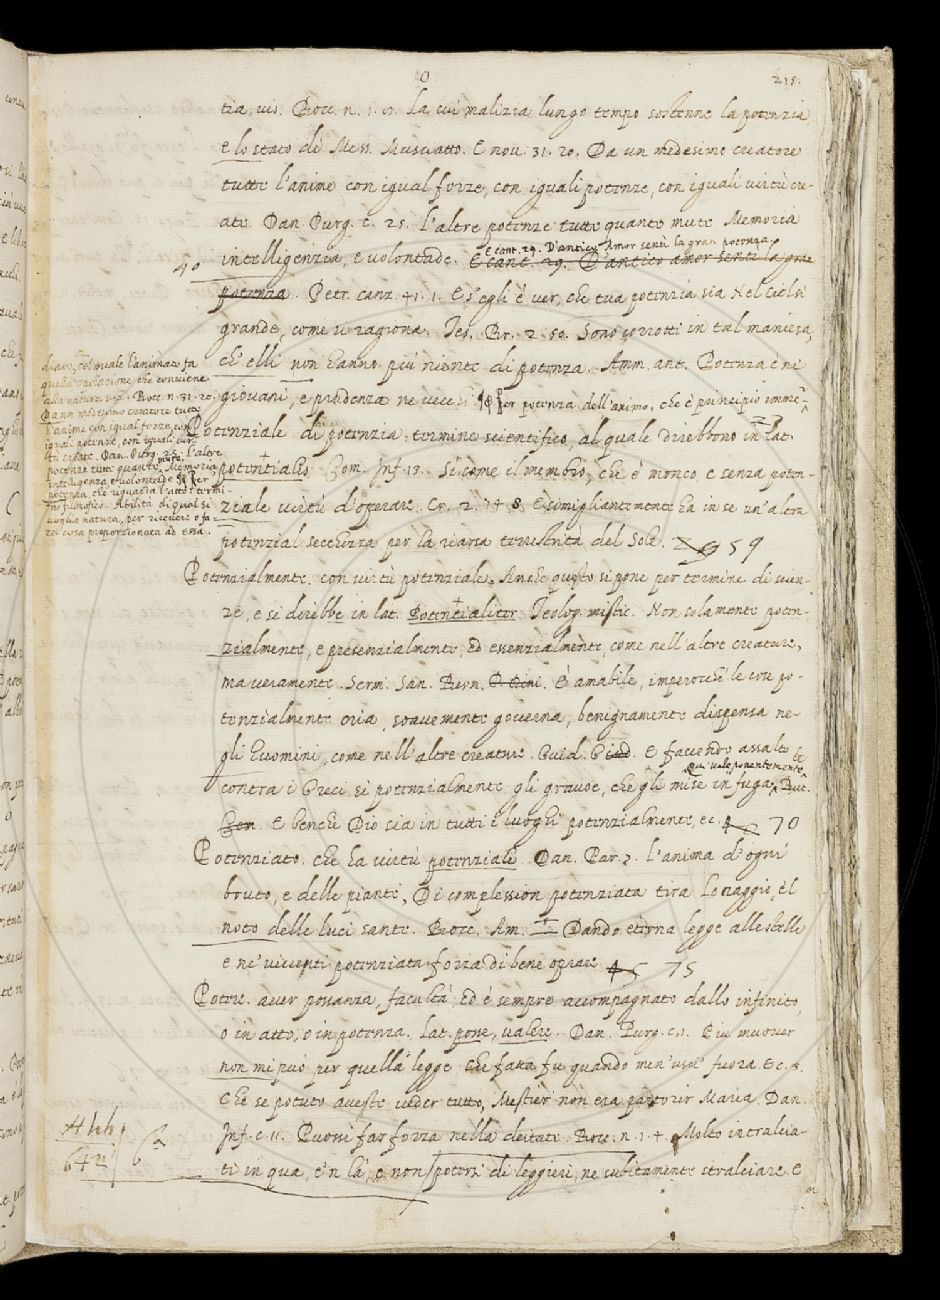 215.
tia, vis. Bocc. n. 1. 9. La cui malizia lungo tempo sostenne la potenzia
e lo stato di Mess. Musciatto. E nov. 31. 20. Da un medesimo creatore
tutte l'anime con igual forze, con iguali potenze, con iguali virtù cre-
ate. Dan. Purg. c. 25. L'altre potenze tutte quante mute Memoria
E cant. 29. D'antico Amor sentì la gran potenza
intelligenzia, e volontade. E cant. 29. D'antico amor sentì la gran
40
potenza. Petr. canz. 41. 1. E s'egli è ver, che tua potenzia sia Nel ciel sì
grande, come si ragiona. Tes. Br. 2. 50. Sono corrotti in tal maniera,
ch' elli non hanno più niente di potenza. Amm. ant. Potenza è ne'
giovani, e prudenza ne' vecchi §§ Per potenza dell'animo, che è principio imme-
diato, col quale l'anima fa
quella operazione, che conviene
alla natura sua. Bocc. n. 31. 20.
Da un medesimo creatore tutte
l'anime con igual forze, con
iguali potenze, con iguali vir-
tù create. Dan. Purg. 25. L'altre
potenze tutte quante mute, Memoria
intelligenza e volontade §§ Per
potenza, che riguarda l'atto: termi-
no filosofico. Abilità di qual si
voglia natura, per ricevere o fa-
re cosa proporzionata ad essa.
Potenziale di potenzia: termine scientifico, al quale direbbono in lat.
potentialis. Com. Inf. 13. Sì come il membro, che è monco, e senza poten-
ziale virtù d'operare. Cr. 2. 14. 8. E simigliantemente ha in se un'altra
potenzial secchezza per la riarsa terrestrità del Sole. 59
Potenzialmente. con virtù potenziale. Anche questo si pone per termine di scien-
ze, e si direbbe in lat. Potentialiter. Teolog. mistic. Non solamente poten-
zialmente, e presenzialmente, ed essenzialmente, come nell'altre creature,
ma veramente. Serm. San. Bern. È amabile, imperocchè le cose po-
tenzialmente cria, soavemente governa, benignamente dispensa ne-
gli huomini, come nell'altre creature. Guid. Giud. E facendo assalto
Qui vale potentemente
contra i Greci sì potenzialmente gli gravoe, che gli mise in fuga. But.
E benchè Dio sia in tutti i luoghi potenzialmente, ec. 70
Potenziato. che ha virtù potenziale. Dan. Par. 7. L'anima d'ogni
bruto, e delle piante, Di complession potenziata tira Lo raggio, e 'l
moto delle luci sante. Bocc. Am. Dando eterna legge alle stelle
e ne' viventi potenziata forza di bene oprare 75
Potere. aver possanza, facultà, ed è sempre accompagnato dallo infinito,
o in atto, o in potenza. lat. posse, valere. Dan. Purg. c. 1. Più muover
non mi può per quella legge Che fatta fu quando men' uscì fuora. E c. 3.
Che se potuto aveste veder tutto, Mestier non era partorir Maria. Dan.
Inf. c. 11. Puossi far forza nella deitate. Bocc. n. 1. 4. Molto intralcia-
ti in qua, e 'n là, e non potersi di leggieri, ne subitamente stralciare. E